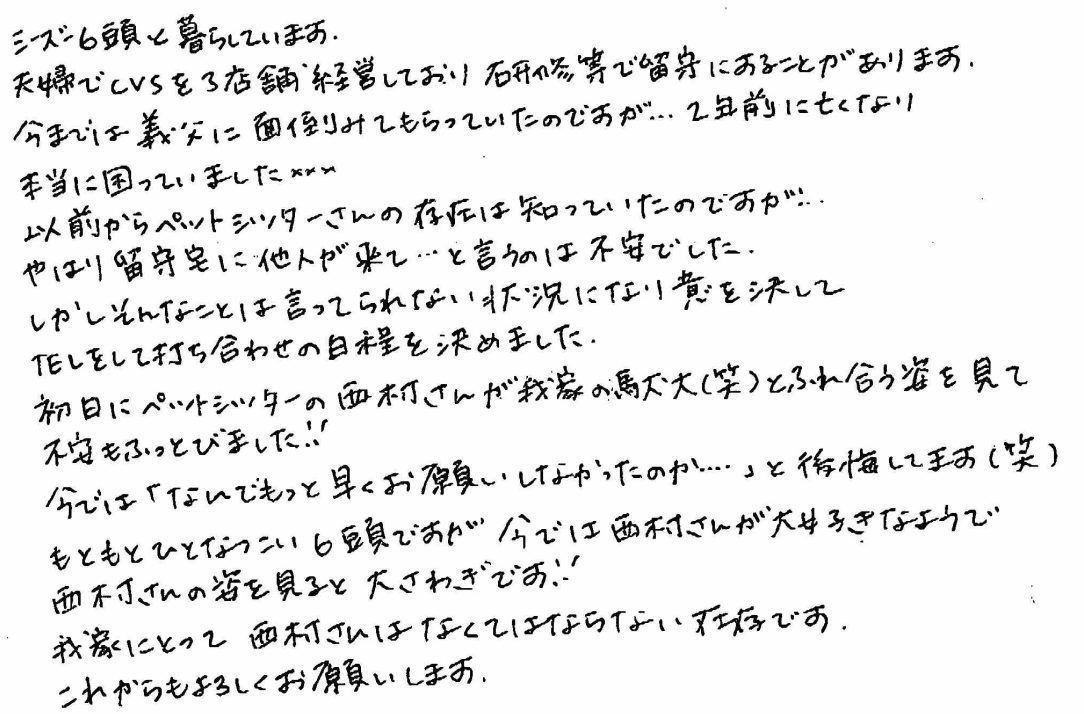 シーズー6頭と暮らしています.
夫婦でCVSを3店舗経営しており 研修等で留守にすることがあります.
今までは義父に面倒みてもらっていたのですが… 2年前に亡くなり
本当に困っていました×××
以前からペットシッターさんの存在は知っていたのですが…
やはり留守宅に他人が来て…と言うのは不安でした.
しかしそんなことは言ってられない状況になり意を決して
TELをして打ち合わせの日程を決めました.
初日にペットシッターの西村さんが我家の馬犬犬(笑)とふれ合う姿を見て
不安もふっとびました!!
今では「なんでもっと早くお願いしなかったのか….」と後悔してます(笑)
もともとひとなつこい6頭ですが 今では西村さんが大好きなようで
西村さんの姿を見ると大さわぎです!!
我家にとって西村さんはなくてはならない存在です.
これからもよろしくお願いします.